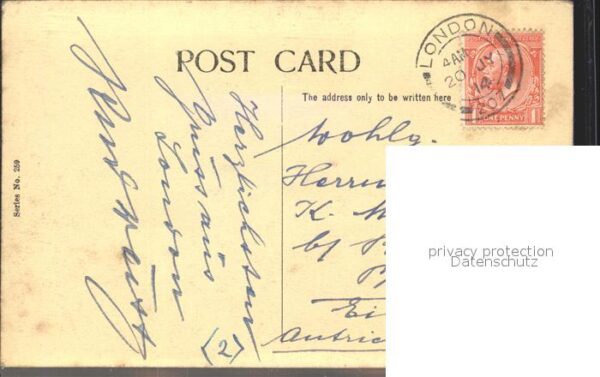 POST CARD
The address only to be written here
Series No. 259
LONDON
4 AM
20 JY
14
ONE PENNY
1
Herzlichsten
Gruss aus
London
(2)
Wohlg.
Herrn
K. M
b/
Ei
Autric
privacy protection
Datenschutz